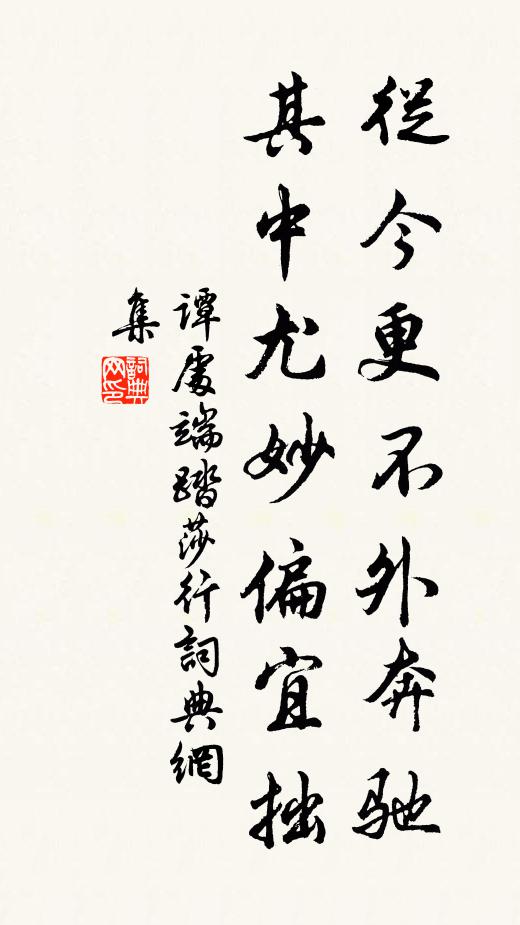 從今更不外奔馳
其中尤妙偏宜拙
譚處端踏莎行詞典網
集
詞典
网印